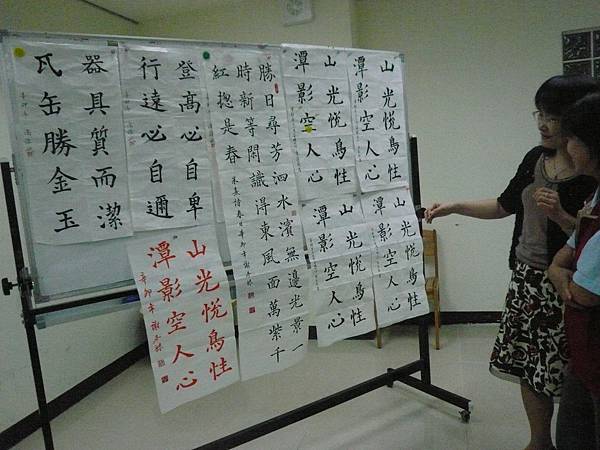 器具質而潔
瓦缶勝金玉
辛卯年
登高必自卑
行遠必自邇
勝日尋芳泗水濱無邊光景一
時新等閑識得東風面萬紫千
紅摠是春
朱熹詩春日辛卯年謝
山光悅鳥性
潭影空人心
山光悅鳥性
潭影空人心
山光悅鳥性
潭影空人心
山光悅鳥性
潭影空人心
山光悅鳥性
潭影空人心
辛卯年謝